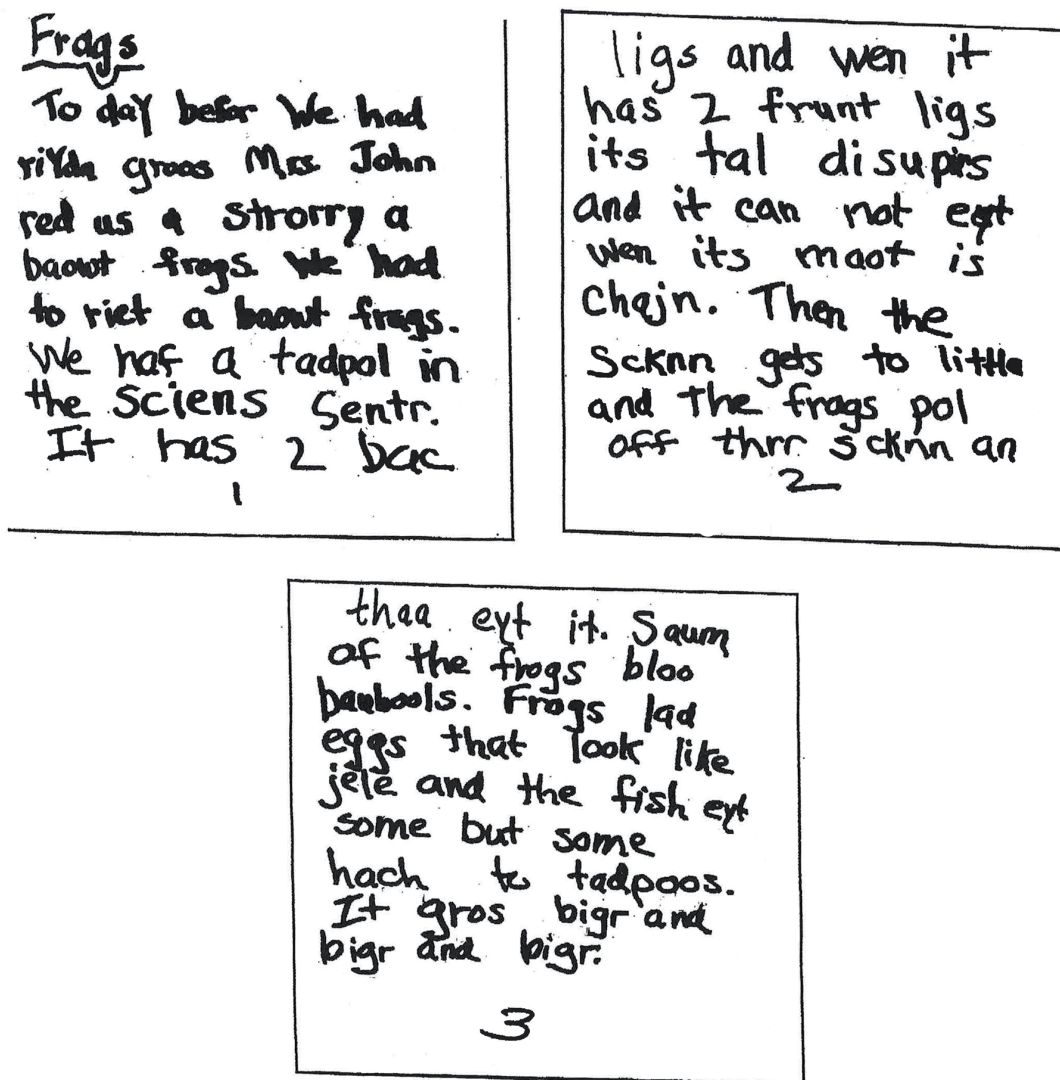 Frags
To day befor We had
riYda groos Mrs. John
red us a strorry a
baowt frogs. We had
to riet a baowt frags.
We haf a tadpol in
the sciens Sentr.
It has 2 bac
1
ligs and wen it
has 2 frunt ligs
its tal disupirs
and it can not eyt
wen its maot is
Chajn. Then the
Scknn gets to little
and The frogs pol
off thrr scknn an
2
thaa eyt it. Saum
af the frogs bloo
baubools. Frogs lad
eggs that look like
jele and the fish eyt
some but some
hach to tadpoos.
It gros bigr and
bigr and bigr.
3